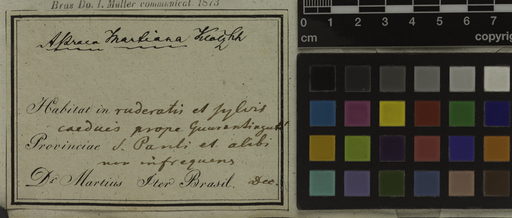 Bras Do. J. Müller communicat. 1873
Ayenia Martiana Klotzsch
Habitat in ruderatis et sylvis
caeduis prope Guaratinguetá
Provinciae S. Pauli et alibi
non infrequens
Dr. Martius Iter Brasil. Dec.
cm
copyrig